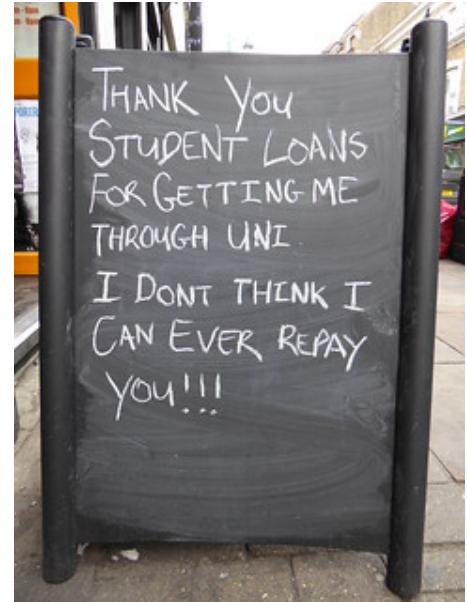 THANK YOU
STUDENT LOANS
FOR GETTING ME
THROUGH UNI
I DONT THINK I
CAN EVER REPAY
YOU!!!